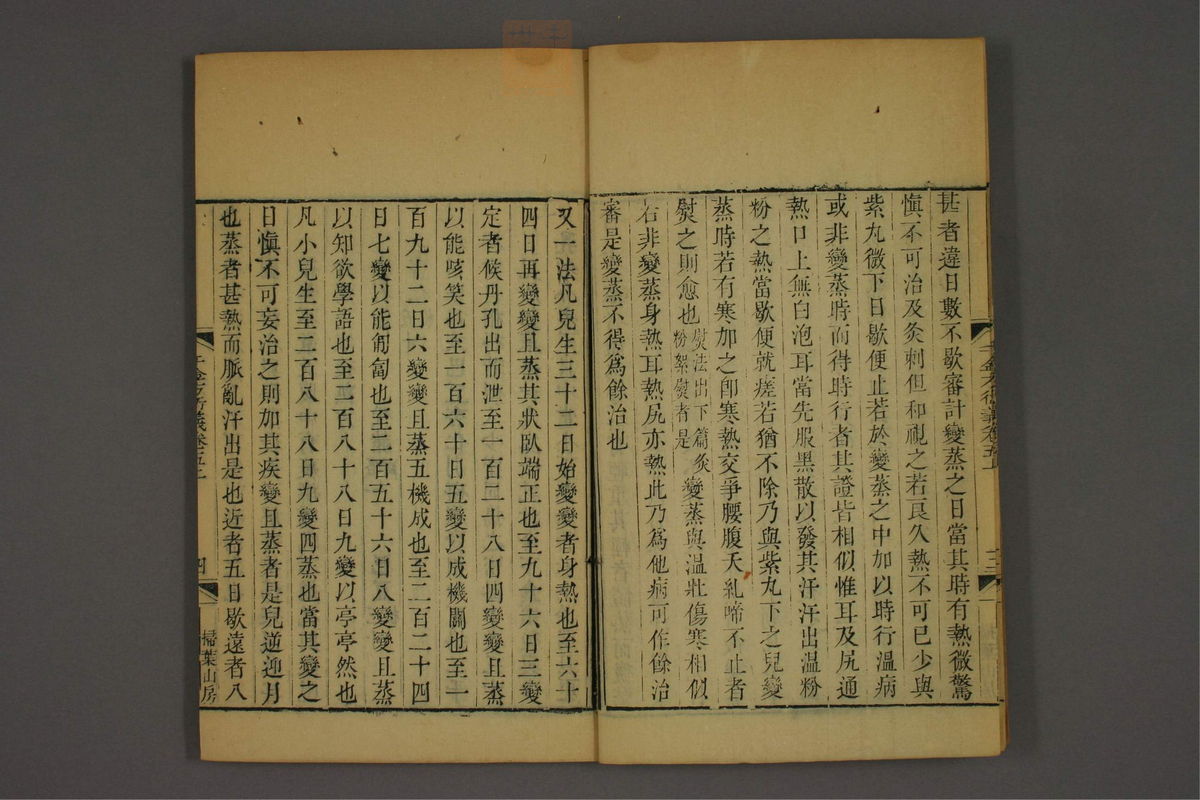 甚者違日數不歇審計變蒸之日當其時有熱微驚
愼不可治及灸刺但和視之若良久熱不可已少與
紫丸微下日歇便止若於變蒸之中加以時行溫病
或非變蒸時而得時行者其證皆相似惟耳及尻通
熱口上無白泡耳當先服黑散以發其汗汗出温粉
粉之熱當歇便就瘥若猶不除乃與紫丸下之兒變
蒸時若有寒加之卽寒熱交爭腰腹夭糺啼不止者
熨之則愈也熨法出下篇灸粉絮熨者是變蒸與温壯傷寒相似
若非變蒸身熱耳熱尻亦熱此乃爲他病可作餘治
審是變蒸不得爲餘治也
又一法凡兒生三十二日始變變者身熱也至六十
四日再變變且蒸其狀臥端正也至九十六日三變
定者候丹孔出而泄至一百二十八日四變變且蒸
以能咳笑也至一百六十日五變以成機關也至一
百九十二日六變變且蒸五機成也至二百二十四
日七變以能匍匐也至二百五十六日八變變且蒸
以知欲學語也至二百八十八日九變以亭亭然也
凡小兒生至二百八十八日九變四蒸也當其變之
日愼不可妄治之則加其疾變且蒸者是兒逆迎月
也蒸者甚熱而脈亂汗出是也近者五日歇遠者八
千金方衍義卷五上
四
掃葉山房